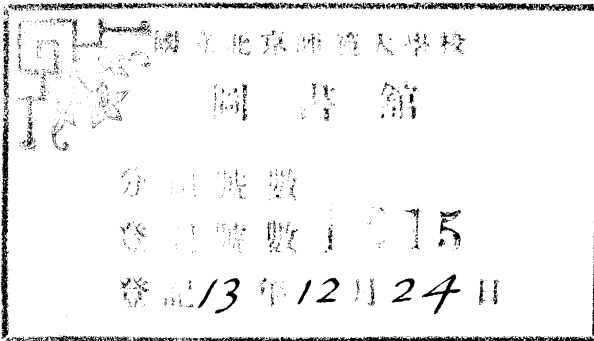 國立北京師範大學校
圖書館
分 號數
登記號數 15
登記13年12月24日